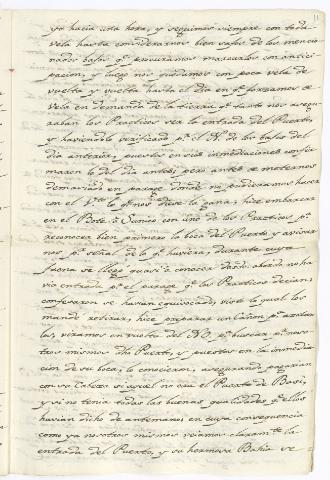 ya hacía una hora, y seguimos siempre con toda
vela hasta considerarnos bien safos de los mencio-
nados bajos qe procuramos marcarlos con antici-
pacion, y luego nos quedamos con poca vela de
vuelta y vuelta hasta el dia en qe forzamos de
vela en demanda de la tierra qe tanto nos asegu-
raban los Practicos ser la entrada del Puerto,
y haviendolo verificado pr el N. de los bajos del
dia anterior, puestos en sus inmediaciones confir-
maron lo del dia antes; pero antes de meternos
demasiado en parage donde no pudieramos hacer
con el Vto lo qe nos diese la gana; hice embarcar
en el Bote á Cunico con uno de los Practicos pa
reconocer bien primero la boca del Puerto y avisar-
nos pr señal de lo qe huviera, durante cuya
faena se llegó quasi á conocer desde abordo no ha-
via entrada pr el parage qe los Practicos decian;
confesaron se havian equivocado, visto lo qual los
mandé retirar, hice preparar un Cañon pa
viramos en vuelta del NO. pa buscar pr noso-
tros mismos dho Puerto, y puestos en la inmedia-
cion de su boca, lo conocieron, asegurando pagarian
con su Cabeza si aquel no era el Puerto de
y si no tenia todas las buenas qualidades qe ellos
havian dicho de antemano; en cuya consequencia
como ya nosotros mismos veiamos claramte la
entrada del Puerto, y su hermosa Bahia se